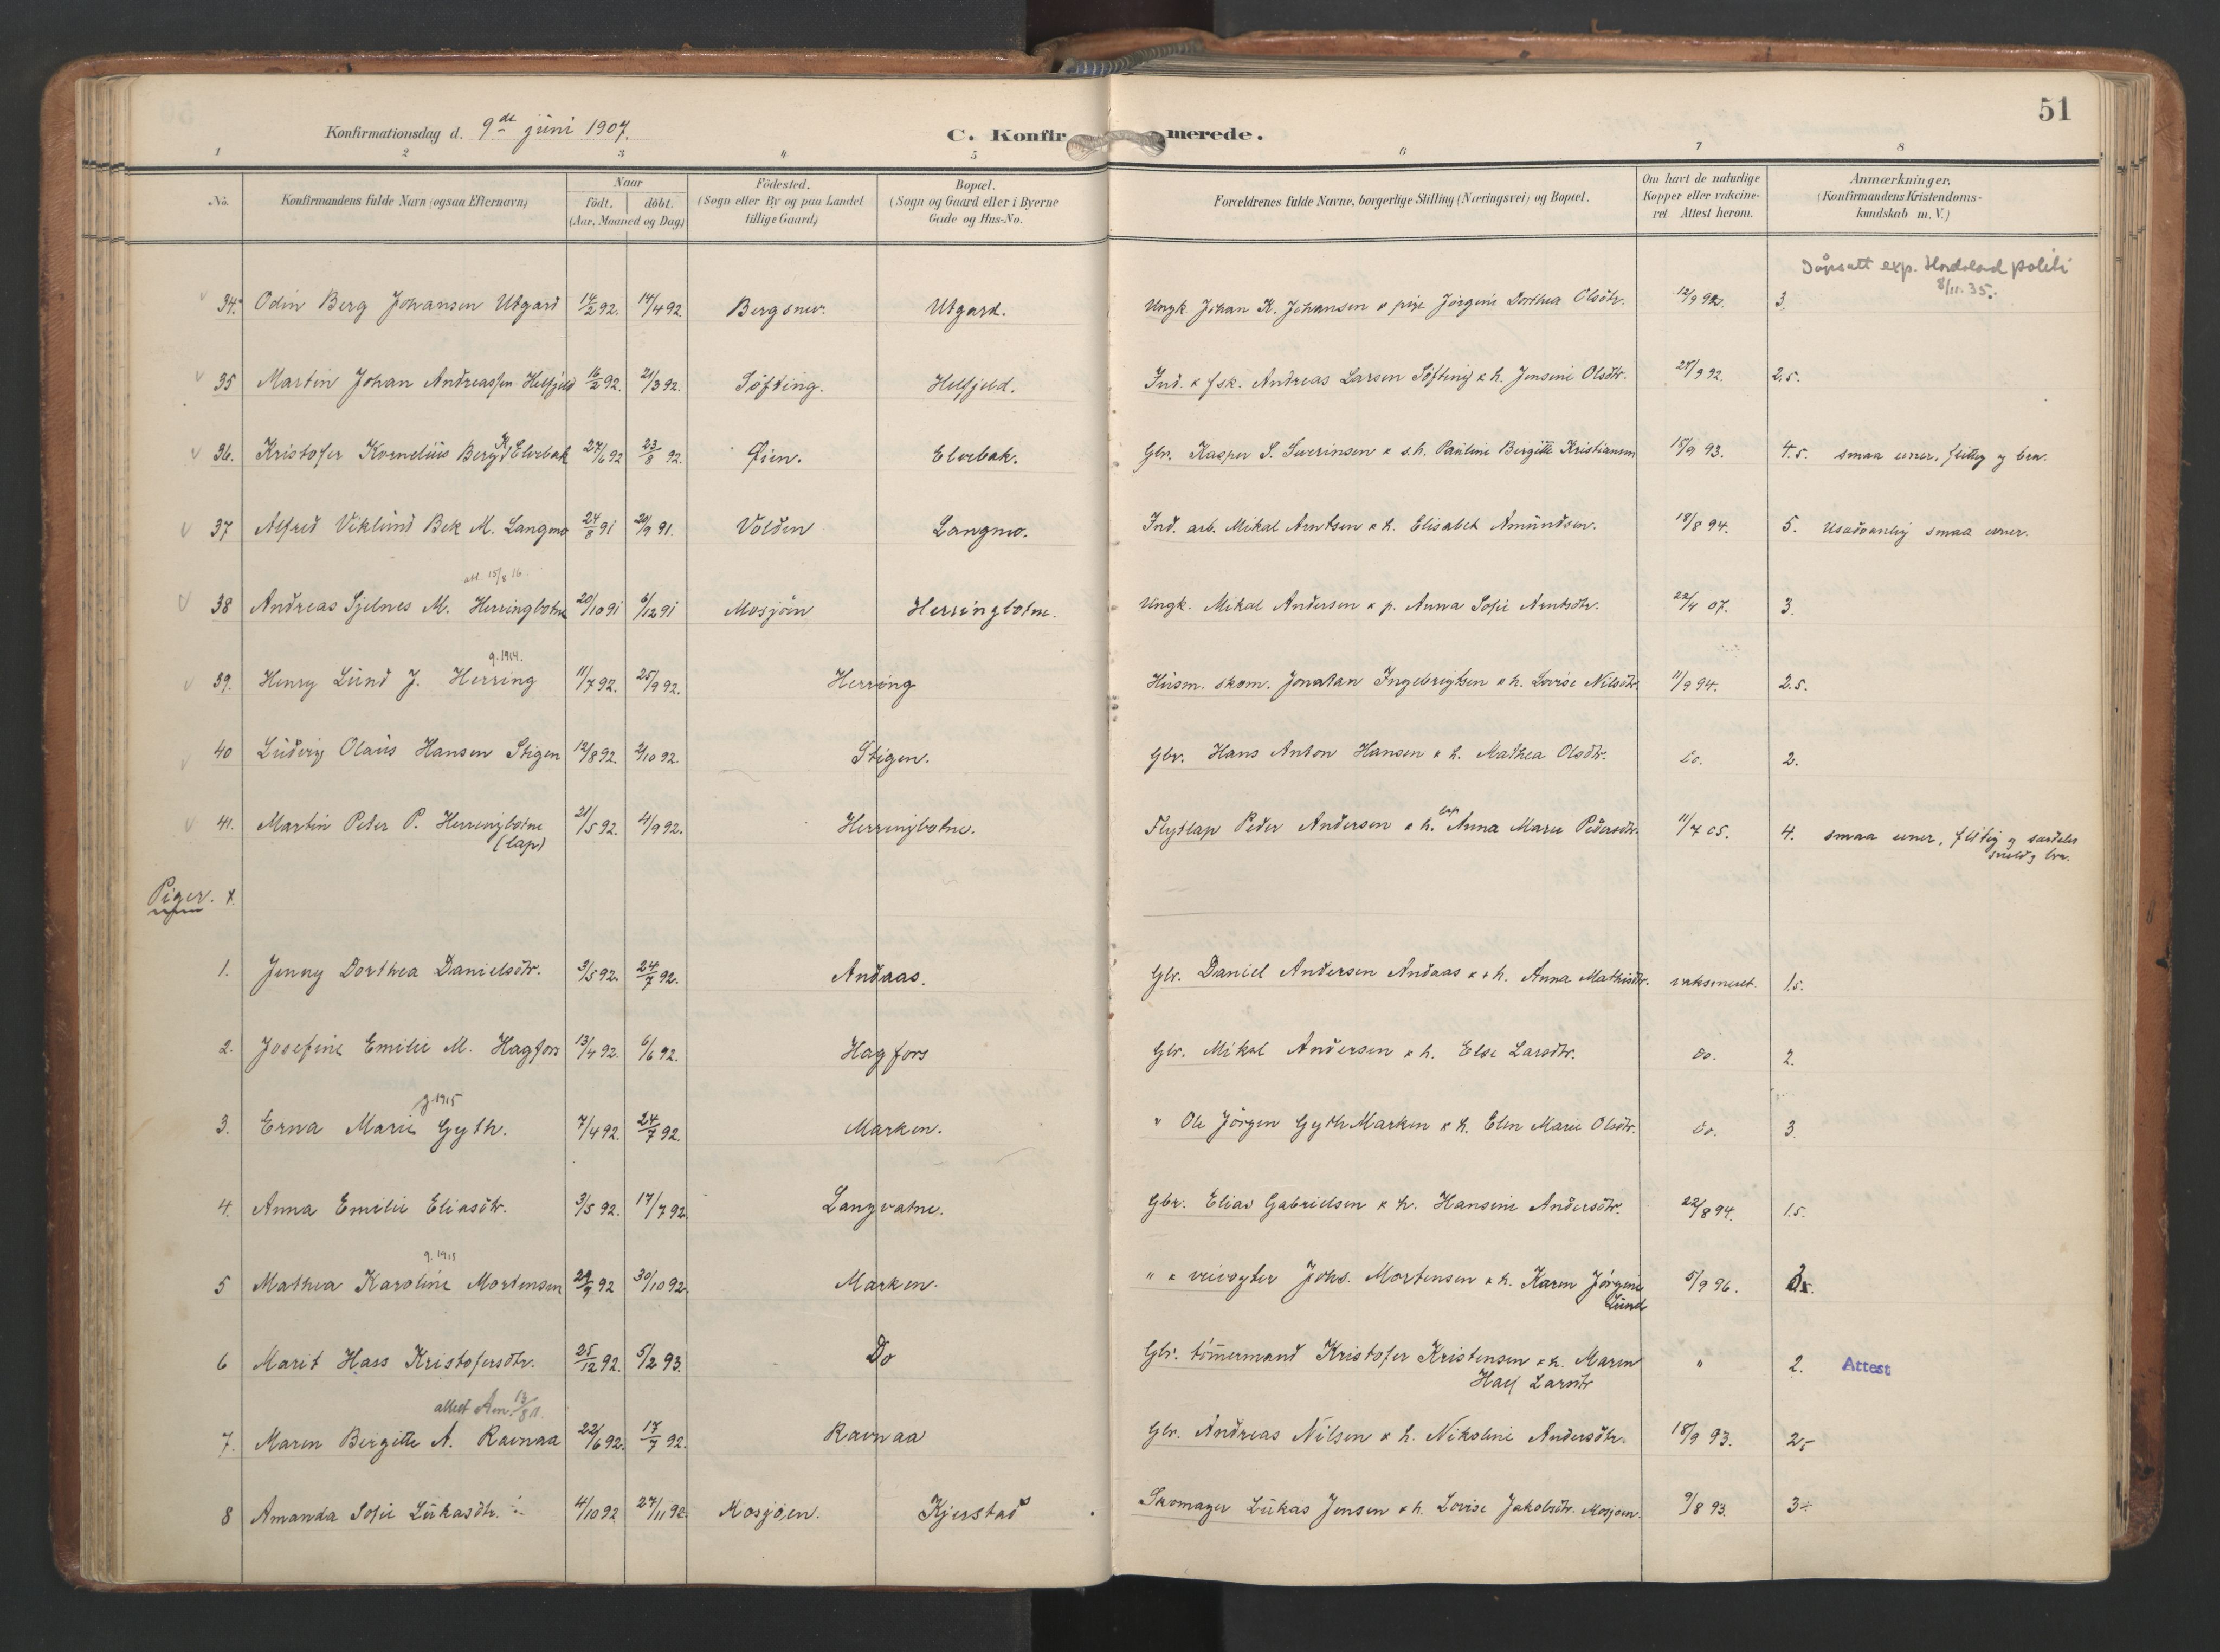 51
Konfirmationsdag d. 9de juni 1907.
C. Konfirmerede.
1 2 3 4 5 6 7 8
No. Konfirmandens fulde Navn (ogsaa Efternavn) Naar födt. döbt. (Aar, Maaned og Dag) Födested. (Sogn eller By og paa Landet tillige Gaard) Bopæl. (Sogn og Gaard eller i Byerne Gade og Hus-No. Forældrenes fulde Navne, borgerlige Stilling (Næringsvei) og Bopæl. Om havt de naturlige Kopper eller vakcineret Attest herom. Anmærkninger. (Konfirmandens Kristendomskundskab m. V.)
Dåpsatt exp. Hordaland politi
8/11.35.
34. Odin Berg Johansen Utgard 14/2 92. 14/4 92 Bergsnev. Utgard. Ungk. Johan K. Johansen & pige Jörgine Dorthea Olsdtr. 12/9 92. 3.
35 Martin Johan Andreassen Helfjeld 16/2 92. 21/3 92. Söfting. Helfjeld. Ind. & fsk. Andreas Larsen Söfting & h. Jensine Olsdtr. 25/9 92. 2.5.
36. Kristofer Kornelius Berg K. Elvebak 27/6 92 23/8 92. Öien. Elvebak. Gbr. Kasper S. Severinsen & s.h. Pauline Birgitte Kristiansen 15/9 93. 4.5. smaa evner, flittig og bra.
37 Alfred Viklund Bek M. Langmo 24/8 91 20/9 91. Volden Langmo. Ind. arb. Mikal Arntsen & h. Elisabet Amundsen. 18/8 94. 5. Usædvanlig smaa evner.
att 15/8 16.
38 Andreas Sjelnes M. Herringbotne 20/10 91 6/12 91 Mosjöen Herringbotne. Ungk. Mikal Andersen & p. Anna Sofie Arntsdtr. 22/4 07. 3.
g. 1914.
39. Henry Lund J. Herring 11/7 92. 25/9 92. Herring Husm. skom. Jonatan Ingebrigtsen & h. Lovise Nilsdtr. 11/9 94. 2.5.
40 Ludvig Olaus Hansen Stigen 12/8 92. 2/10 92. Stigen. Gbr. Hans Anton Hansen & h. Mathea Olsdtr. do. 2.
41. Martin Peter P. Herringbotne 21/5 92. 4/9 92. Herringbotne. Flytlap Peder Andersen & h. lap Anna Marie Pedersdtr. 11/7 05. 4. smaa evner, flittig og særdeles
(lap)
Piger.
1. Jenny Dorthea Danielsdtr. 3/5 92. 24/7 92. Andaas. Gbr. Daniel Andersen Andaas & h. Anna Mathisdtr. vaksineret. 1.5.
2. Josefine Emilie M. Hagfors 13/4 92. 6/6 92. Hagfors Gbr. Mikal Andersen & h. Else Larsdtr. do. 2.
g. 1915
3. Erna Marie Gyth. 7/4 92. 24/7 92. Marken. " Ole Jörgen Gyth Marken & h. Elen Marie Olsdtr. do. 3.
4. Anna Emilie Eliasdtr. 3/5 92. 17/7 92. Langvatne. Gbr. Elias Gabrielsen & h. Hansine Andersdtr. 22/8 94. 1.5.
g. 1913
5 Mathea Karoline Mortensen 29/9 92 30/10 92. Marken. " & veivogter Johs. Mortensen & h. Karen Jörgine 5/9 96.
Lund
6 Marit Hass Kristofersdtr. 25/12 92. 5/2 93. Do Gbr. tömmermand Kristofer Kristensen & h. Maren " 2. Attest
Hass Larsdtr
attest Am. 13/8 11.
7. Maren Bergitte A. Ravnaa 22/6 92. 17/7 92. Ravnaa Gbr. Andreas Nilsen & h. Nikoline Andersdtr. 18/9 93. 2.5
8 Amanda Sofie Lukasdtr. 4/10 92 27/11 92 Mosjöen. Kjerstad Skomager Lukas Jensen & h. Lovise Jakobsdtr. Mosjöen. 9/8 93. 3